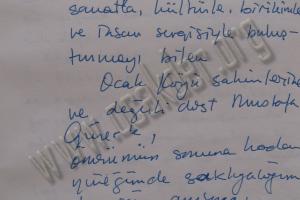 sanatla, kültürle, birikimle
ve insan sevgisiyle buluş-
turmayı bilen
Ocak Köyü sahinlerine
ve değerli dost Mustafa
Gürer'e!
ömrümün sonuna kadar
yüreğimde saklayacağım